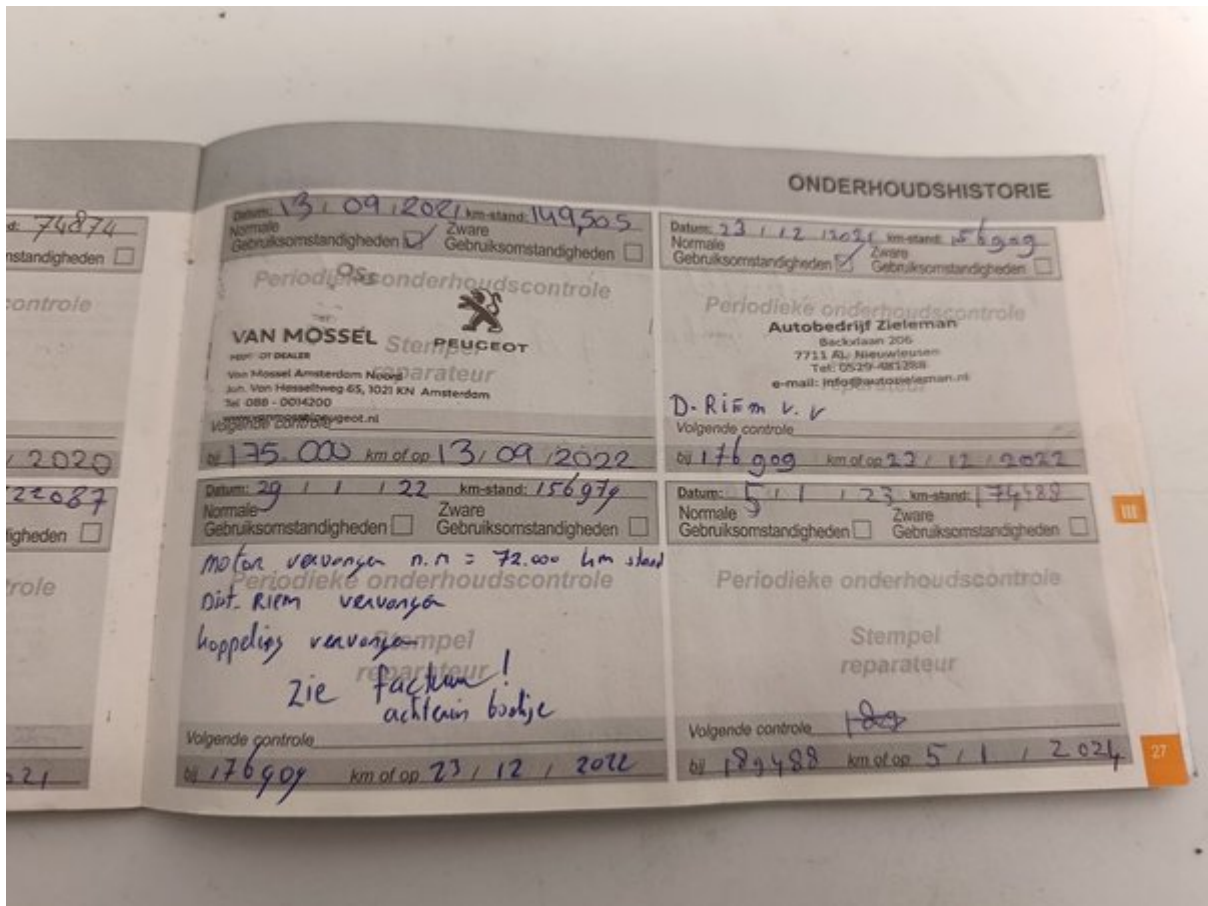 ONDERHOUDSHISTORIE
74874
nstandigheden
controle
2020
22087
igheden
trole
21
Datum: 13 / 09 / 2021 km-stand: 149,505
Normale Gebruiksomstandigheden Zware Gebruiksomstandigheden
Periodieke onderhoudscontrole
Oss
VAN MOSSEL PEUGEOT
PEUGEOT DEALER
Stempel reparateur
Van Mossel Amsterdam Noord
Joh. Van Hasseltweg 65, 1021 KN Amsterdam
Tel 088 - 0014200
www.vanmosselpeugeot.nl
Volgende controle
bij 175.000 km of op 13 / 09 / 2022
Datum: 23 / 12 / 2021 km-stand: 156909
Normale Gebruiksomstandigheden Zware Gebruiksomstandigheden
Periodieke onderhoudscontrole
Autobedrijf Zieleman
Backxlaan 206
7711 AL Nieuwleusen
Tel: 0529-481288
e-mail: info@autozieleman.nl
reparateur
D-Riem v.v
Volgende controle
bij 176909 km of op 23 / 12 / 2022
Datum: 29 / 1 / 22 km-stand: 156979
Normale Gebruiksomstandigheden Zware Gebruiksomstandigheden
motor vervangen n.n = 72.000 km stand
Periodieke onderhoudscontrole
Dist. Riem vervangen
koppeling vervangen
Stempel reparateur
zie factuur!
achterin boekje
Volgende controle
bij 176909 km of op 23 / 12 / 2022
Datum: 5 / 1 / 23 km-stand: 174488
Normale Gebruiksomstandigheden Zware Gebruiksomstandigheden
Periodieke onderhoudscontrole
Stempel
reparateur
Volgende controle
bij 189488 km of op 5 / 1 / 2024
III
27